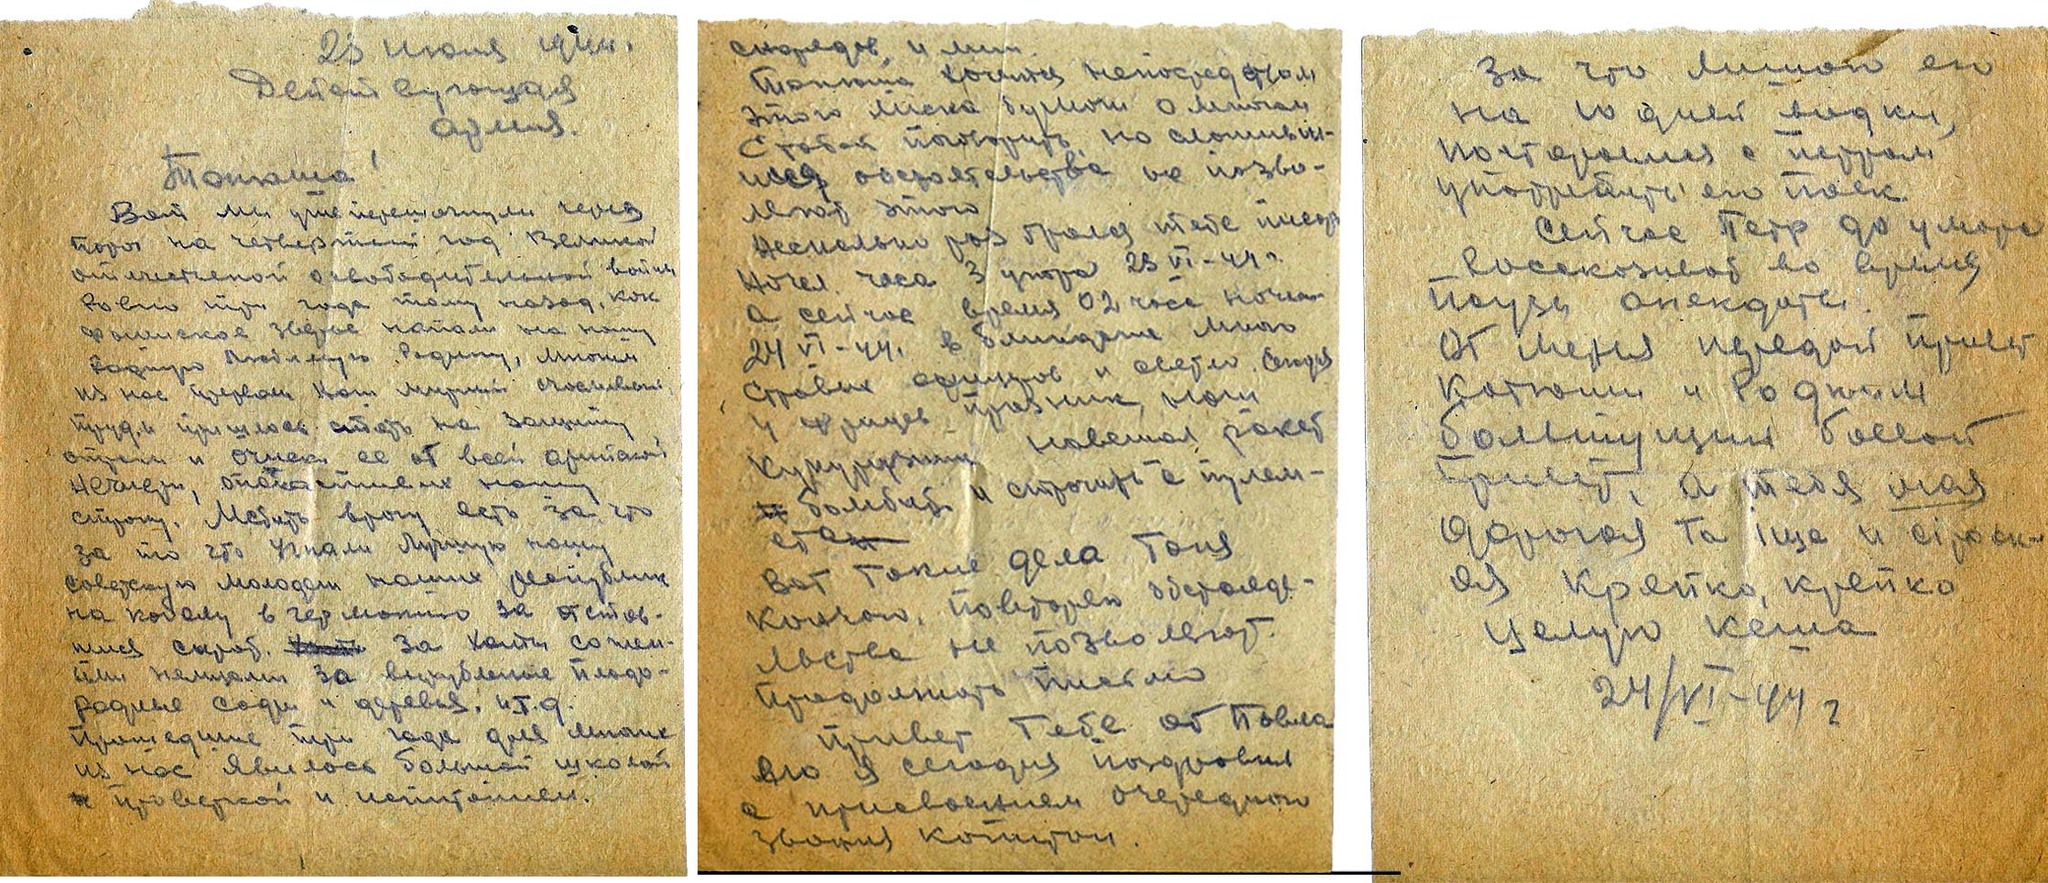 23 июня 1944г.
Действующая
армия.
Танюша!
Вот мы уже перешагнули через
порог на четвертый год Великой
отечественой освободительной войны
Ровно три года тому назад, как
фашиское зверье напали на нашу
родную любимую Родину, многим
из нас прервали наш мирный счасливый
труд и пришлось стать на защиту
отчизны и очистки ее от всей арийской
нечисти, нашу
страну. Мстить врагу есть за что
за то что угнали лучшую нашу
советскую молодеж наших республик
на каторгу в германию за остав-
шися сирот. за хаты сожжен-
ыми немцами за вырубленые плодо-
родные сады и деревья. и т.д.
Прошедшие три года для многих
из нас явилось большой школой
проверкой и испытанием.
снарядов и мин.
Танюша хочется непосредством
этого лиска бумаги о многом
с тобой поговорить, но сложивши-
иеся обстоятельства не позво-
ляют этого
Несколько раз брался тебе писать
Начел часа 3 утра 23 VI-44г.
а сейчас время 02 часа ночи
24 VI-44г. в блиндаже много
у фрицев празник, наш
кукурузник навешал ракет
бомбит и строчить с пулем-
ета
Вот такие дела Таня
Кончаю, повторяю обстояте-
льства не позволяют.
продолжать письмо
Привет Тебе от Павла
его я сегодня поздравил
с присвоением очередного
звания капитан.
За что лишаю его
на 10 дней водки,
постараемся с Петром
употребить его паек.
Сейчас Петр до умора
расказывает во время
паузы анекдоты.
От меня передай привет
Катюши и Родным
большущий боевой
привет, а тебя моя
дорогая Таніца и
ая Крепко, крепко
Целую Кеша
24/VI-44г